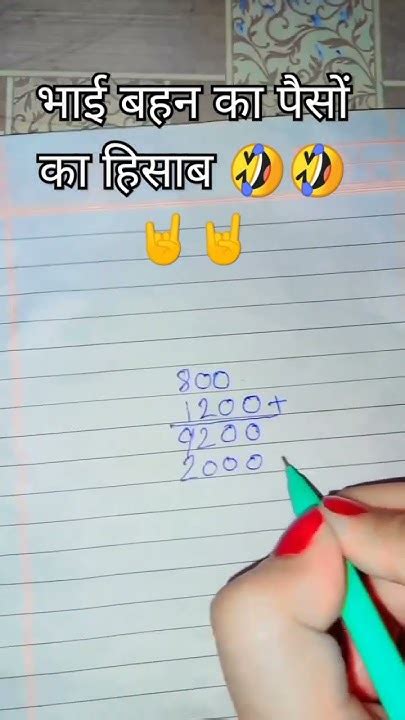 भाई बहन का पैसों
का हिसाब 🤣🤣
🤘🤘
800
1200+
9200
2000